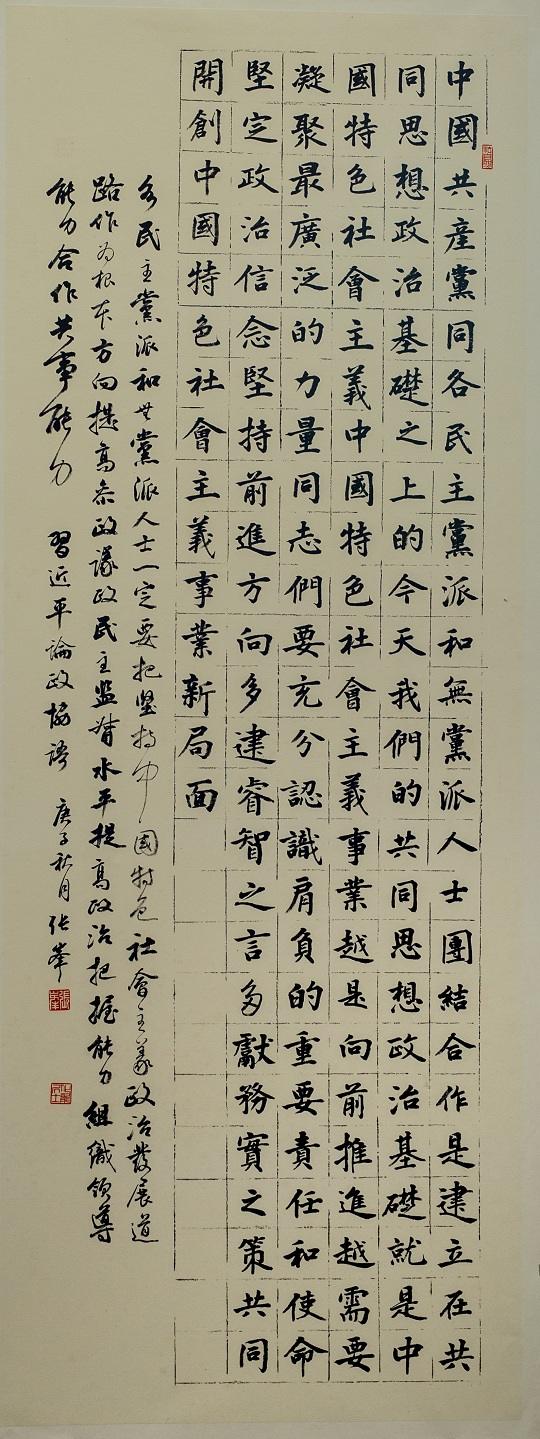 中國共產黨同各民主黨派和無黨派人士團結合作是建立在共
同思想政治基礎之上的今天我們的共同思想政治基礎就是中
國特色社會主義中國特色社會主義事業越是向前推進越需要
凝聚最廣泛的力量同志們要充分認識肩負的重要責任和使命
堅定政治信念堅持前進方向多建睿智之言多獻務實之策共同
開創中國特色社會主義事業新局面
各民主黨派和無黨派人士一定要把堅持中國特色社會主義政治發展道
路作為根本方向提高參政議政民主監督水平提高政治把握能力組織領導
能力合作共事能力 習近平論政協語 庚子秋月 张峯